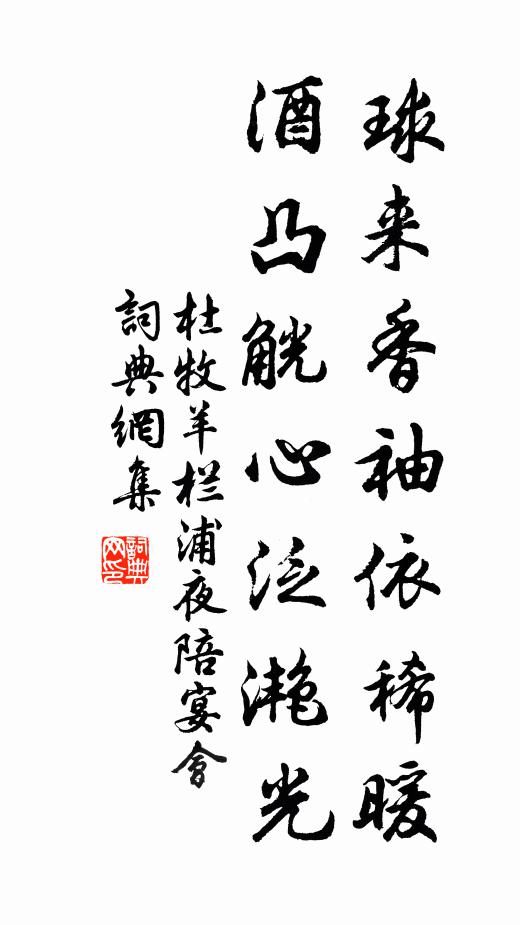 球来香袖依稀暖
酒凸觥心泛滟光
杜牧羊栏浦夜陪宴會
詞典網集
詞典
网印